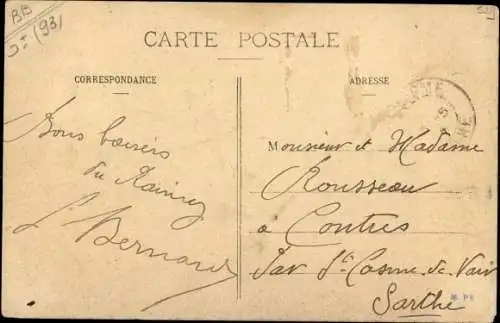 BB
(93)
CARTE POSTALE
CORRESPONDANCE
ADRESSE
Bons baisers
du Raincy
L. Bernard
Monsieur et Madame
Rousseau
à Contres
Par St Cosme de Vair
Sarthe